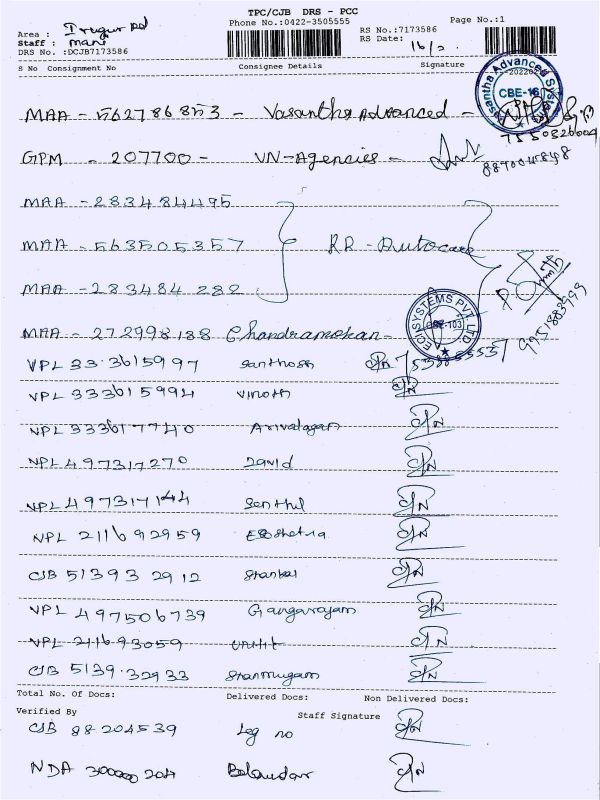 TPC/CJB DRS - PCC
Phone No.:0422-3505555
Page No.:1
Area : Irugur Rd
Staff : Mani
DRS No. :DCJB7173586
RS No.:7173586
RS Date: 16/2
S No Consignment No Consignee Details Signature
MAA - 562786853 - Vasantha Advanced -
Vasantha Advanced System
CBE-16
GPM - 207700 - VN-Agencies -
MAA - 283484495
MAA - 563505357 RR - Autocare
MAA - 283484282
9951883993
ECISYSTEMS PVT LTD
CBE-103
MAA - 272998188 Chandramohan -
VPL 333615997 Santhosh
VPL 333615994 Vinoth
VPL 333617740 Arivalagan
VPL 497317270 David
VPL 497317144 Senthil
VPL 211692959
CJB 513932912
VPL 497506739 Gangarajam
VPL 211693059
CJB 513932933 Shanmugam
Total No. Of Docs: Delivered Docs: Non Delivered Docs:
Verified By Staff Signature
CJB 88204539 Leg no
NDA